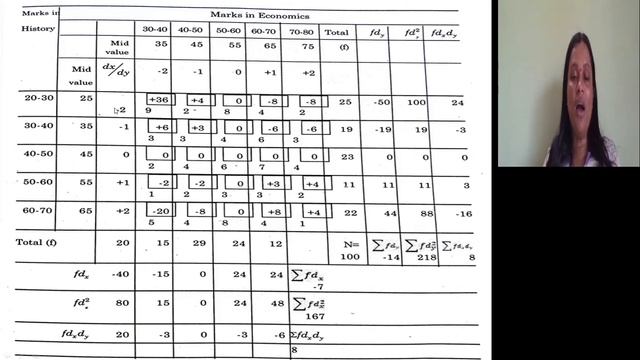 Marks in Economics
Marks in History 30-40 40-50 50-60 60-70 70-80 Total fdy fd²y fdxdy
Mid value 35 45 55 65 75 (f)
Mid value dx/dy -2 -1 0 +1 +2
20-30 25 -2 +36 +4 0 -8 -8 25 -50 100 24
9 2 8 4 2
30-40 35 -1 +6 +3 0 -6 -6 19 -19 19 -3
3 3 4 6 3
40-50 45 0 0 0 0 0 0 23 0 0 0
2 4 6 7 4
50-60 55 +1 -2 -2 0 +3 +4 11 11 11 3
1 2 3 3 2
60-70 65 +2 -20 -8 0 +8 +4 22 44 88 -16
5 4 8 4 1
Total (f) 20 15 29 24 12 N= ∑fdy ∑fd²y ∑fdxdy
100 -14 218 8
fdx -40 -15 0 24 24 ∑fdx
-7
fd²x 80 15 0 24 48 ∑fd²x
167
fdxdy 20 -3 0 -3 -6 Σfdxdy
8